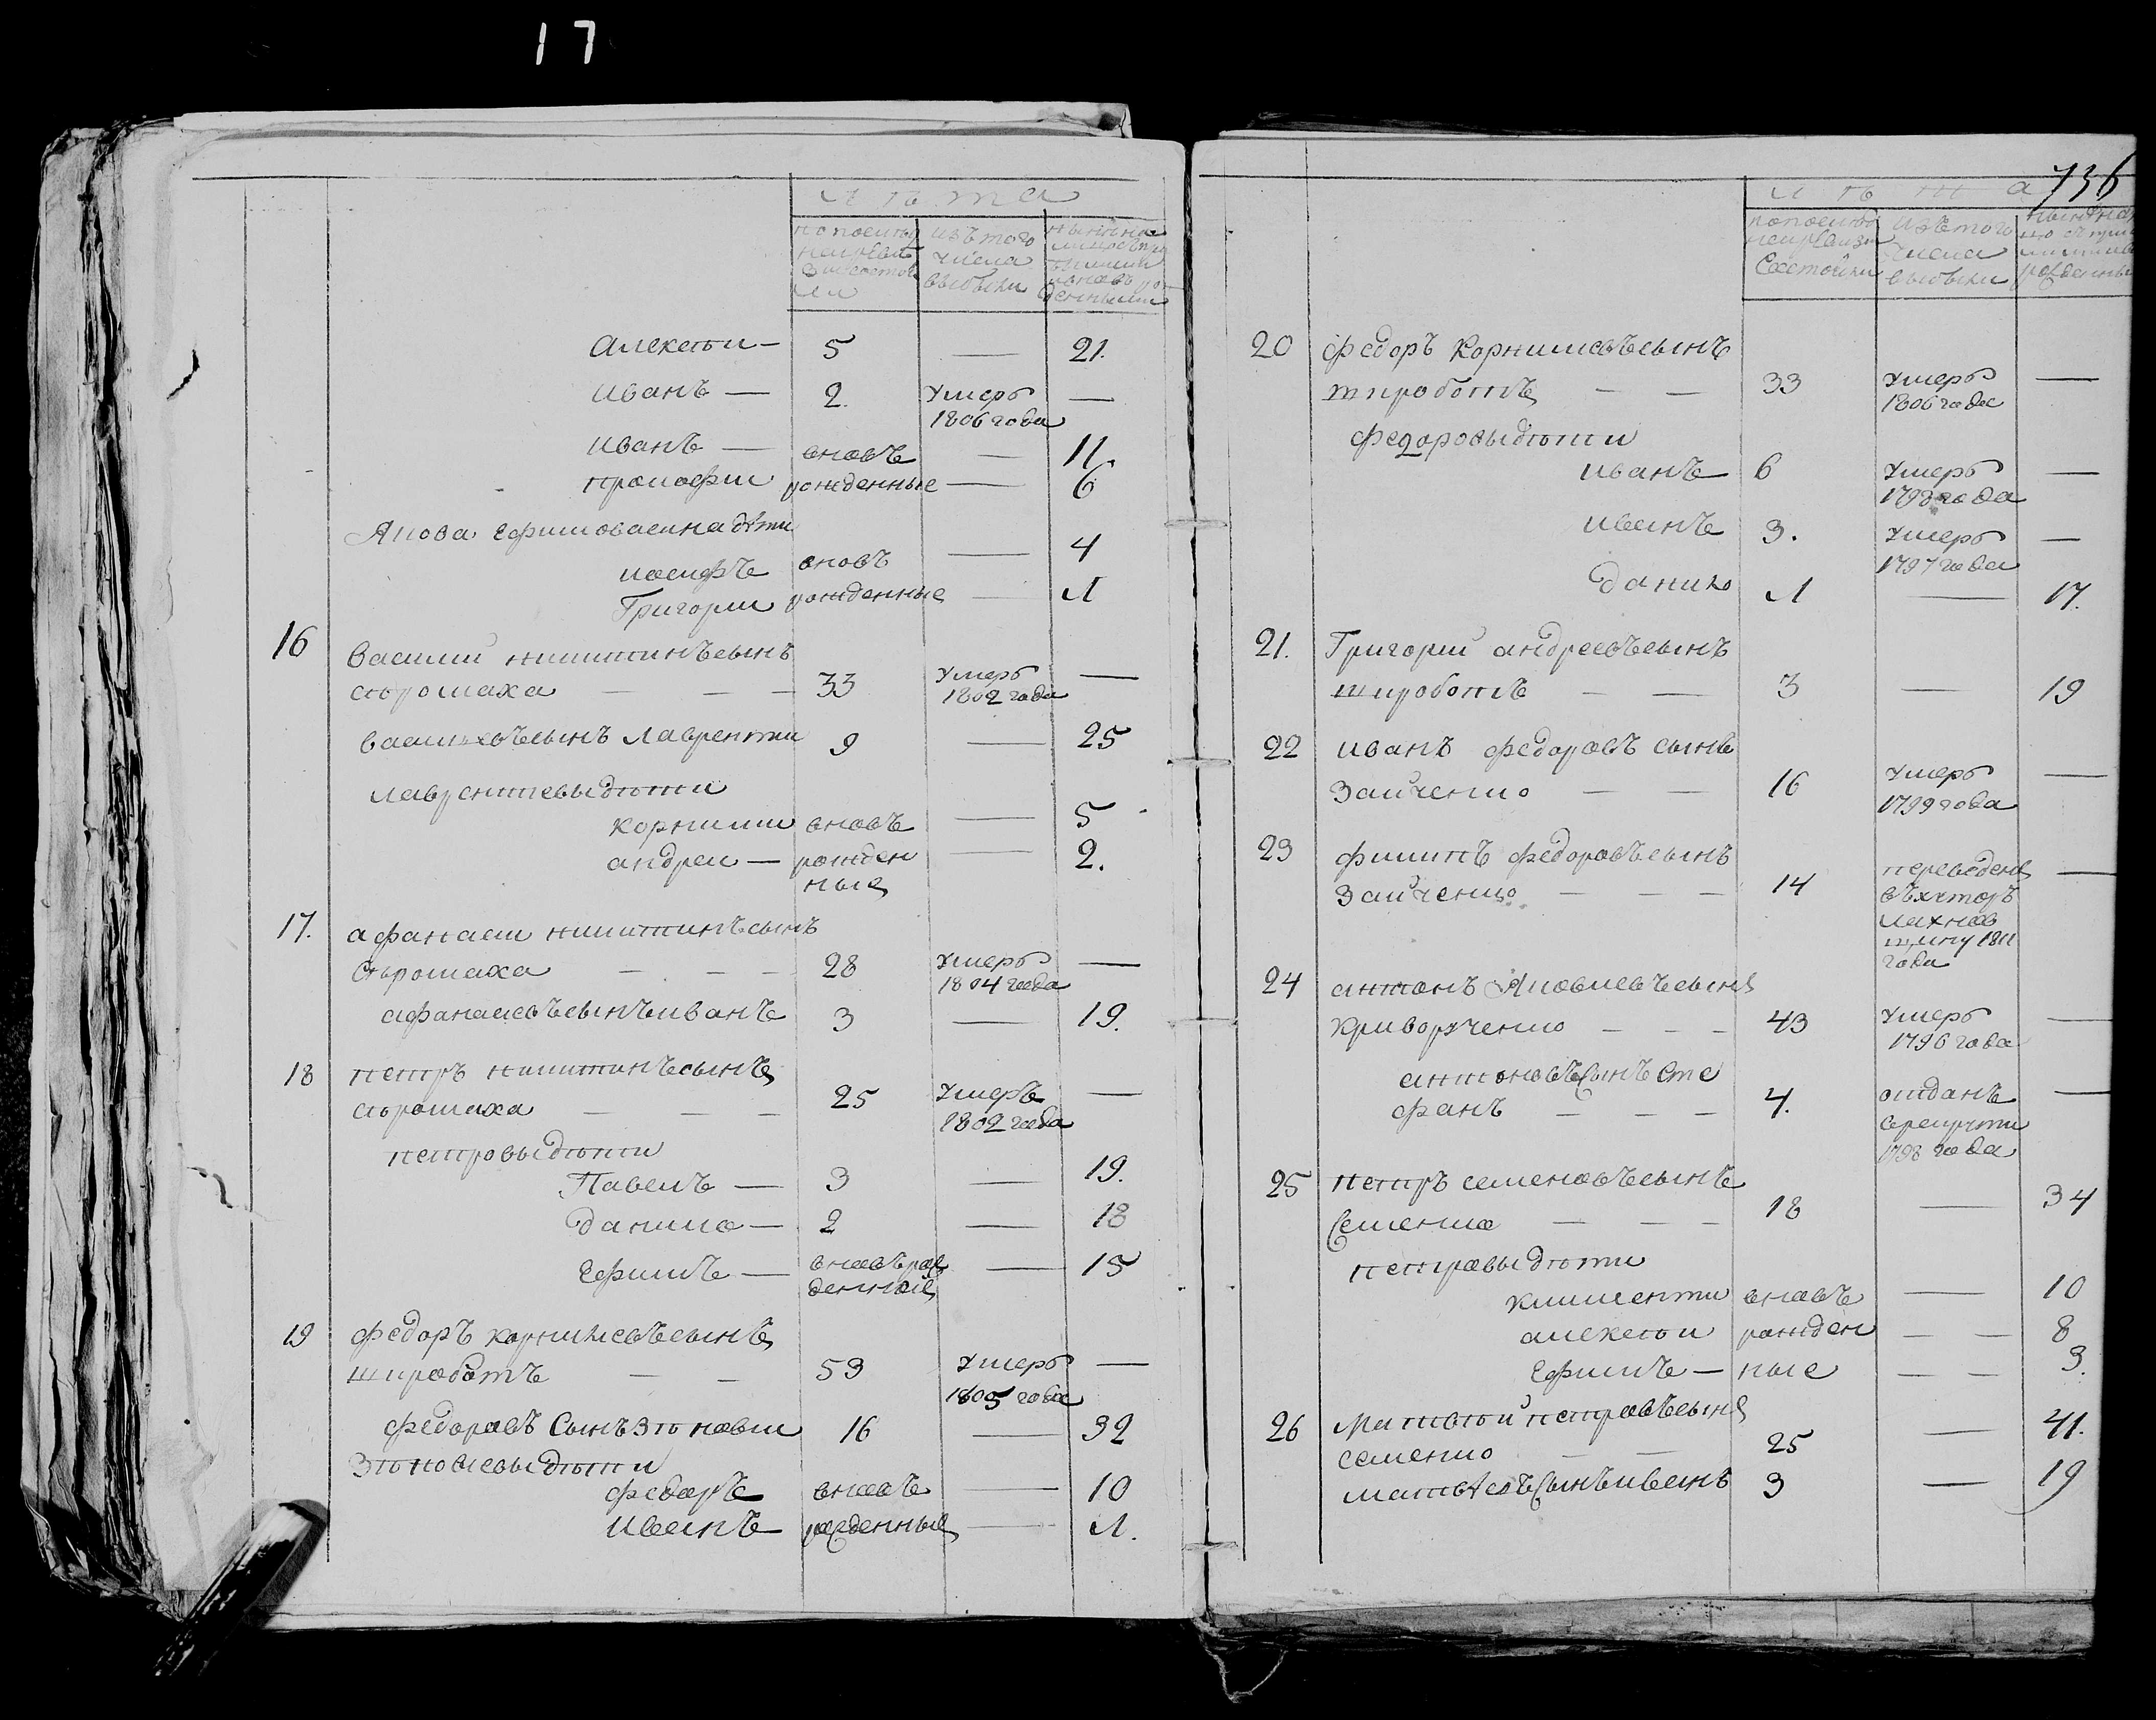 17
лѣта
по последней ревизіи состояли
изъ того числа выбыли
алексѣи — 5 — 21.
иванъ — 2. умеръ —
1806 года
иванъ — вновь — 11.
прокофии рожденные — 6
Якова Ефимова сина дѣти
иосифъ вновъ — 4
Григории рожденные — 1
16 василий никитинъ сынъ
сѣромаха — — — 33 умеръ 1802 года —
василиевъ сынъ лаврентии 9 — 25
лаврентиевы дѣти
корнилии вновъ — 5
андреи — рожден — 2.
ные
17. афанасии никитинъ сынъ
сѣромаха — — — 28 умеръ 1804 года —
афанасиевъ сынъ иванъ 3 — 19.
18 петръ никитинъ сынъ
сѣромаха — — — 25 умеръ —
1802 года
петровы дѣти
Павелъ — 3 — 19.
данило — 2 — 18
Ефимъ — вновъ рож — 15
денной
19 федоръ корнилиевъ сынъ
широботъ — — 53 умеръ —
1805 года
федоровъ Сынъ Зѣновии 16 — 32
Зѣновиевы дѣти
федоръ вновъ — 10
иванъ рожденные — 1.
736
лѣта
состояли
изъ того числа выбыли
20 федоръ корнилиевъ сынъ
широботъ — — 33 умеръ 1806 года —
федоровы дѣти
иванъ 6 умеръ —
1798 года
иванъ 3. умеръ —
1797 года
данило 1 — 17.
21. Григорий андреевъ сынъ
широботъ — — 3 — 19
22 иванъ федоровъ сынъ
Зайченко — — 16 умеръ —
1799 года
23 филипъ федоровъ сынъ
Зайченко — — — 14 переведенъ —
въ хуторъ
1811
года
24 антонъ Яковлевъ сынъ
криворученко — — — 43 умеръ —
1796 года
антоновъ Сынъ Сте
фанъ — — — 4. отданъ —
в рекрути
1798 года
25 петръ семеновъ сынъ
Семенко — — — 18 — 34
петровы дѣти
климентии вновъ — 10
алексѣи рожден — — 8
Ефимъ — ные — — 3.
26 Матвѣй петровъ сынъ
семенко — — 25 — 41.
матвѣевъ Сынъ иванъ 3 — 19